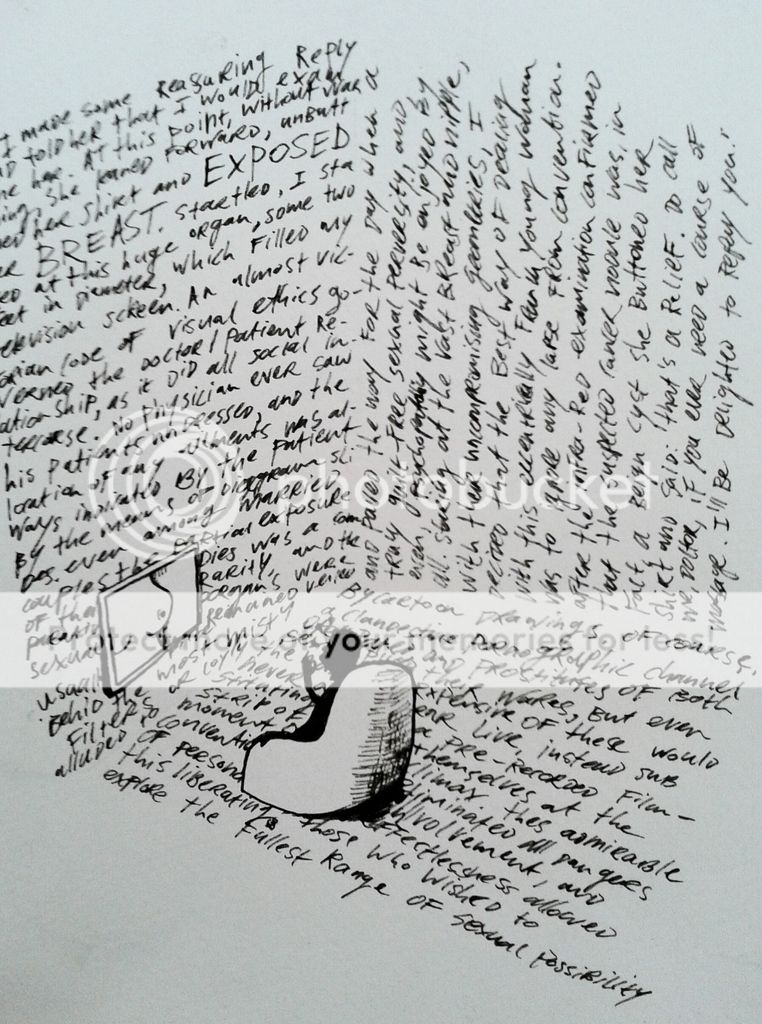 I made some Reassuring Reply
told her that I would exam
ne her. At this point, without war
ing, she leaned forward, unbutt
ed her shirt and EXPOSED
BREAST. Startled, I sta
ed at this huge organ, some two
eet in diameter, which filled my
elevision screen. An almost vic-
orian code of visual ethics go-
verned the doctor / patient Re-
ationship, as it did all social in-
terrorse. No physician ever saw
his patients undressed, and the
location of any ailments was al-
ways indicated By the patient
By the means of diagram sli
des. even among married
couples the partial exposure
of their dies was a com
rarity, and the
sexual organ's were
usual most misty
Behind the
Filters
alluded
By cartoon Drawings of course,
a clandestine pornographic channel
and prostitutes of Both
wares, But even
expensive of these would
ear live, instead sub
strip of a pre-Recorded film-
moment themselves at the
convention climax. thes admirable
eliminated all dangers
of personal involvement, and
this liberating affectlessness allowed
those who wished to
explore the Fullest Range of sexual possibility
and paved the way for the day when a
truly guilt-free sexual perversity, and
even psychopathy might Be enjoyed By
all. Staring at the vast Breast and nipple,
with their uncompromising geometries, I
decided that the Best way of dealing
with this eccentrically Frank young woman
was to ignore any lapse From convention.
after the infra-Red examination confirmed
that the suspected cancer nodule was, in
fact a Benign cyst she Buttoned her
shirt and said: that's a Relief. Do call
me, doctor, if you ever need a course of
massage. I'll Be delighted to Repay you.'
photobucket
Protect more of your memories for less!